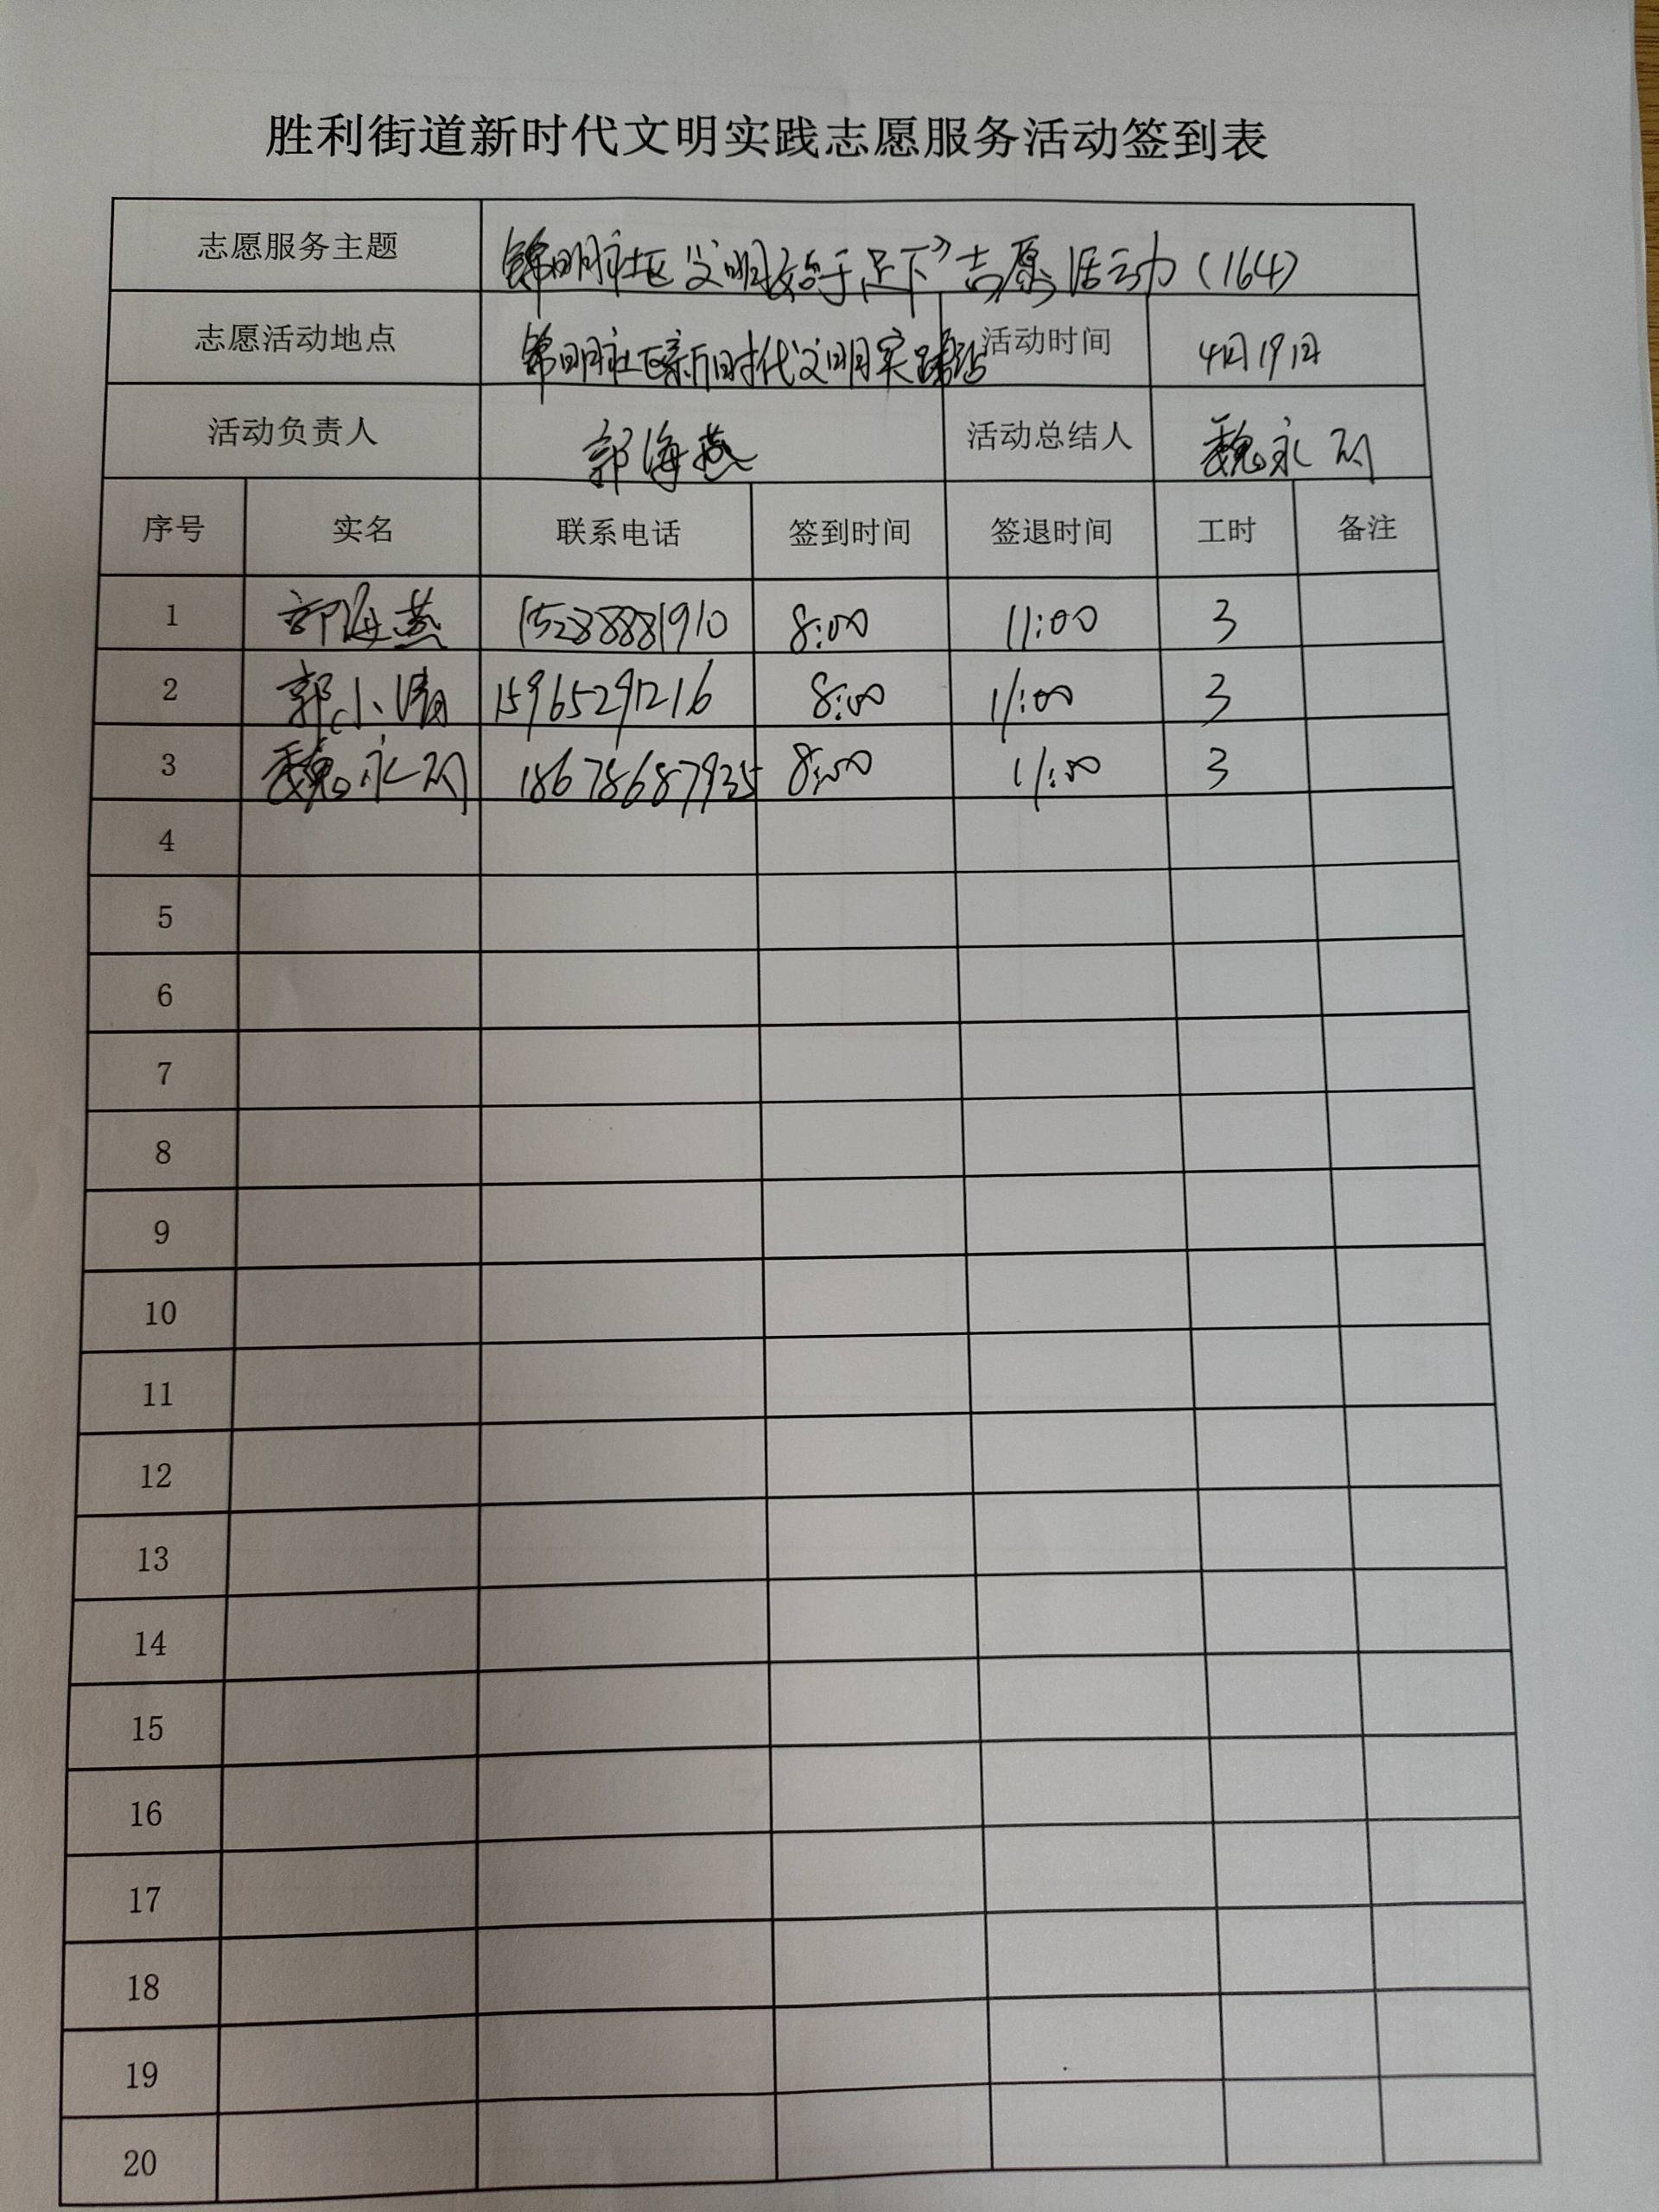 胜利街道新时代文明实践志愿服务活动签到表
志愿服务主题 锦明社区"文明始于足下"志愿活动(164)
志愿活动地点 锦明社区新时代文明实践站 活动时间 4月19日
活动负责人 郭海燕 活动总结人 魏永
序号 实名 联系电话 签到时间 签退时间 工时 备注
1 郭海燕 15288881910 8:00 11:00 3
2 郭小清 15965291216 8:00 11:00 3
3 魏永 18678687935 8:00 11:00 3
4
5
6
7
8
9
10
11
12
13
14
15
16
17
18
19
20